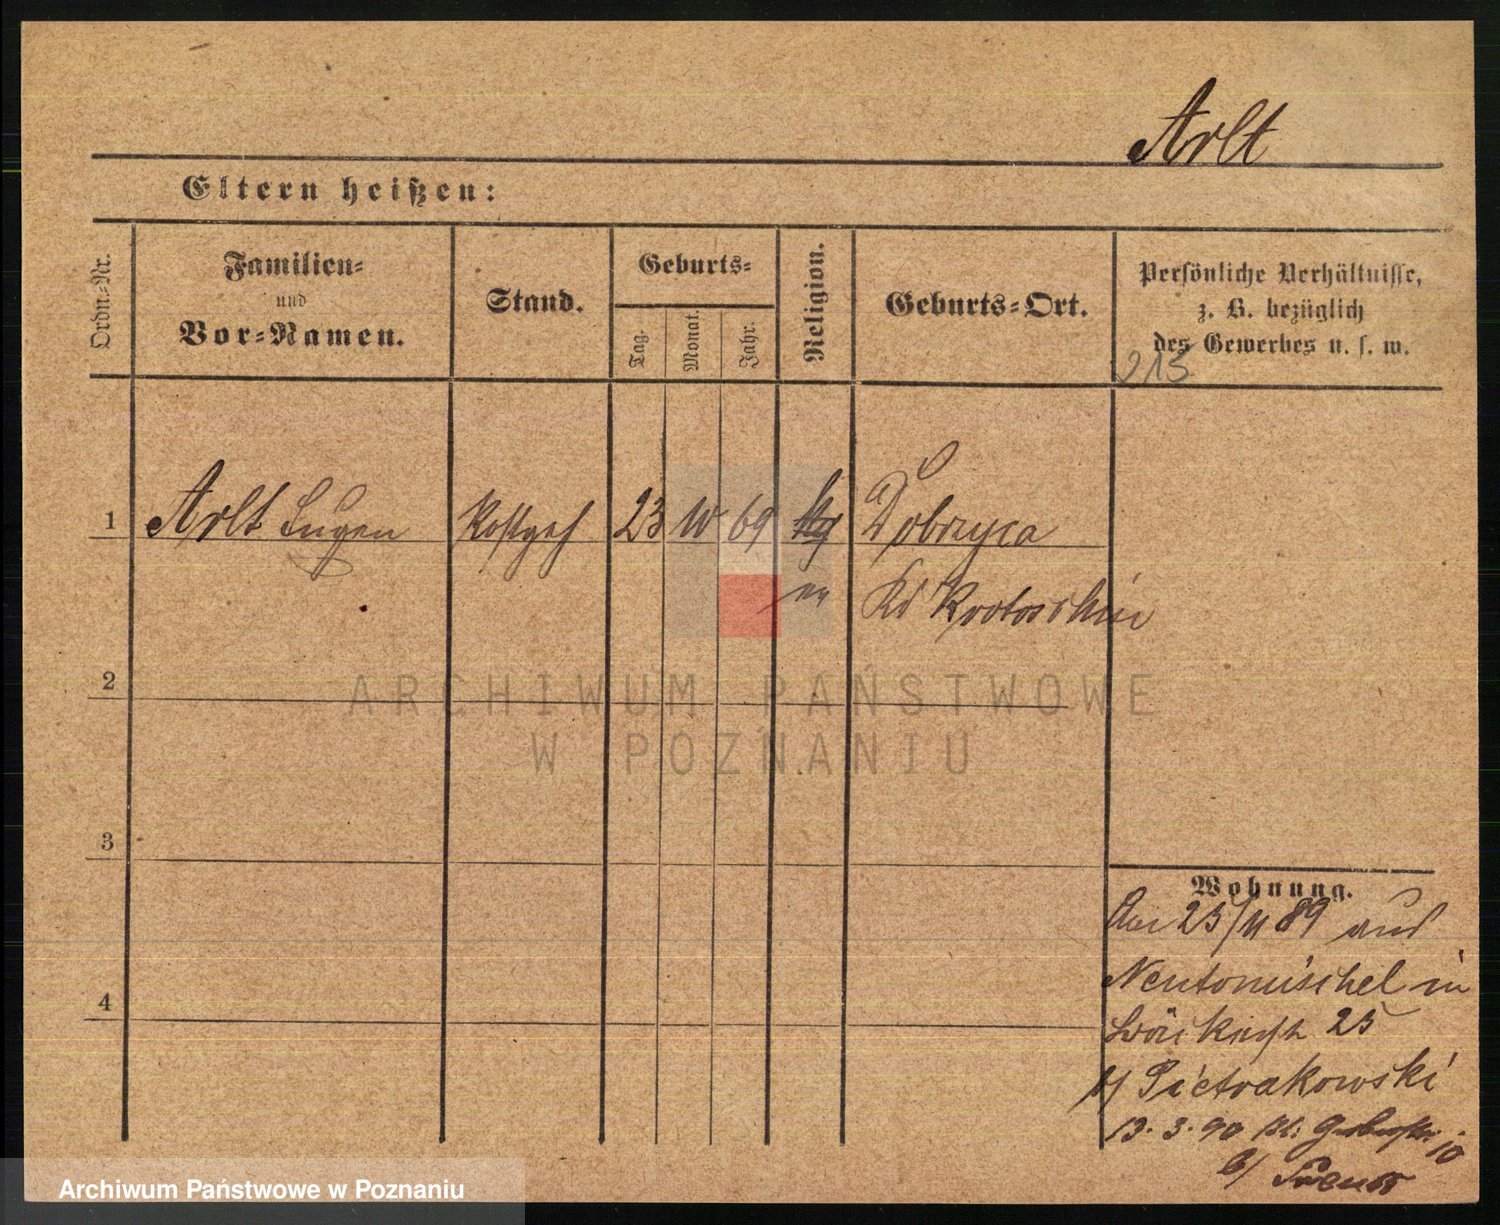 Arlt
Eltern heißen:
Ordn.-Nr.
Familien-
und
Vor-Namen.
Stand.
Geburts-
Tag.
Monat.
Jahr.
Religion.
Geburts-Ort.
Persönliche Verhältnisse,
z. B. bezüglich
des Gewerbes u. s. w.
213
1 Arlt Eugen 23 69 Dobrzyca
Krotoschin
2
3
4
Wohnung.
25/11 89
Neutomischel in
25
b/ Pietrakowski
13. 3. 90 10
b/
ARCHIWUM PAŃSTWOWE
W POZNANIU
Archiwum Państwowe w Poznaniu